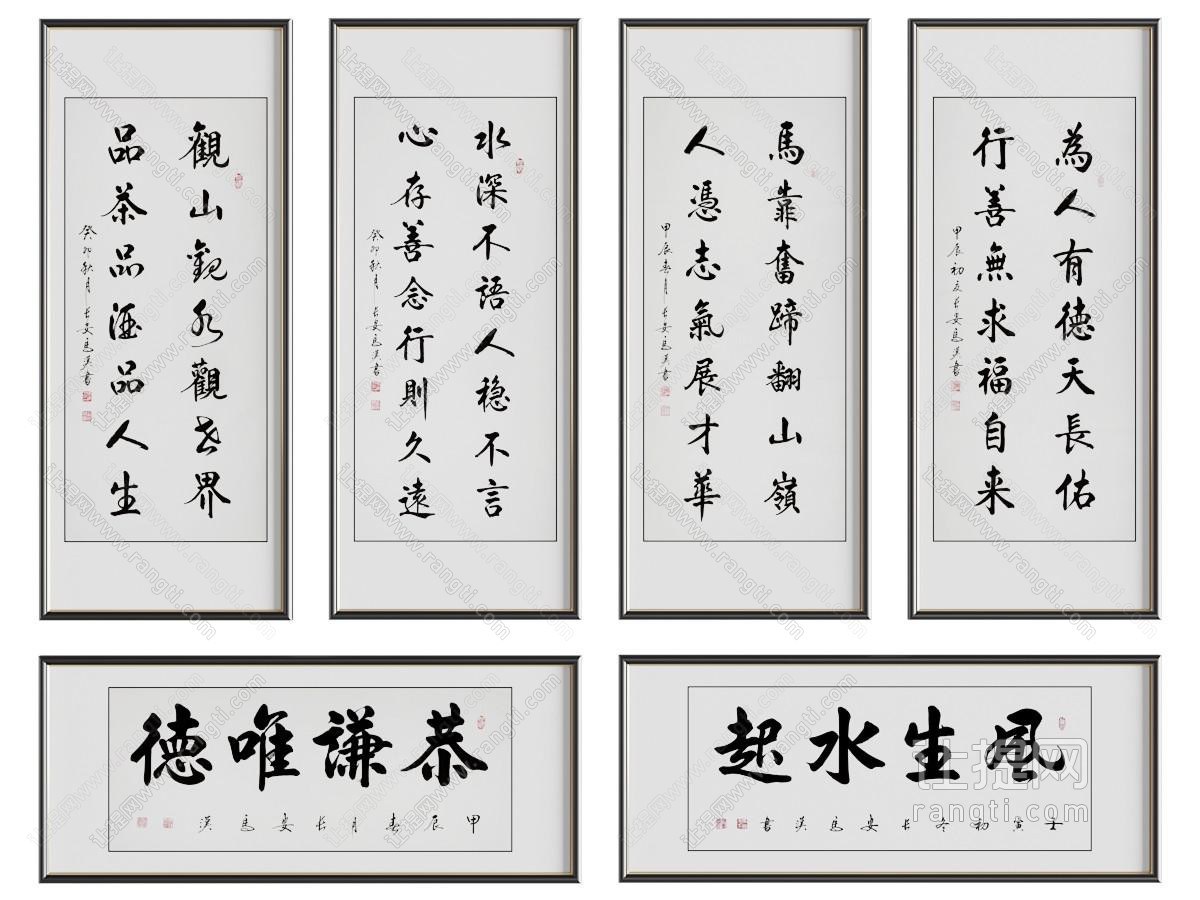 觀山觀水觀世界
品茶品酒品人生
癸卯秋月長安馬漢書
水深不語人稳不言
心存善念行則久遠
癸卯秋月長安馬漢書
馬靠奮蹄翻山嶺
人憑志氣展才華
甲辰春月長安馬漢書
為人有德天長佑
行善無求福自来
甲辰初夏長安馬漢書
恭謙唯德
甲辰春月長安馬漢
風生水起
壬寅初冬長安馬漢書
让提网
rangti.com
让提网www.rangti.com